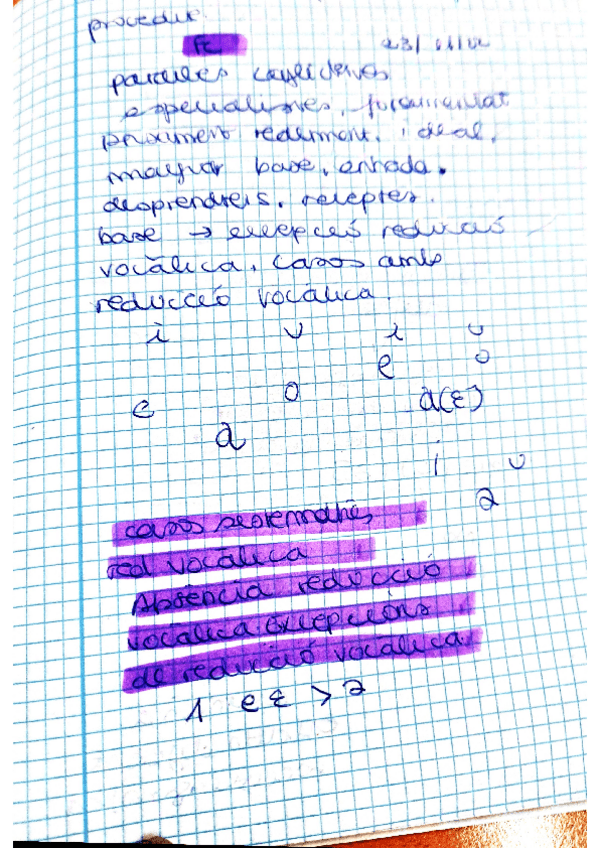 procedir.
FC 23/11/22
paraules
especialistes, fonamentat
document rediment, ideal,
major base, entrada.
desprendreis, receptes.
base → excepció reducció
vocàlica, casos amb
reducció vocàlica.
i u i u
e o
e o a(ɛ)
a
i u
ə
casos sistemàtics
red vocàlica
Absència reducció
vocàlica excepcions
de reducció vocàlica
1 e ɛ > ə